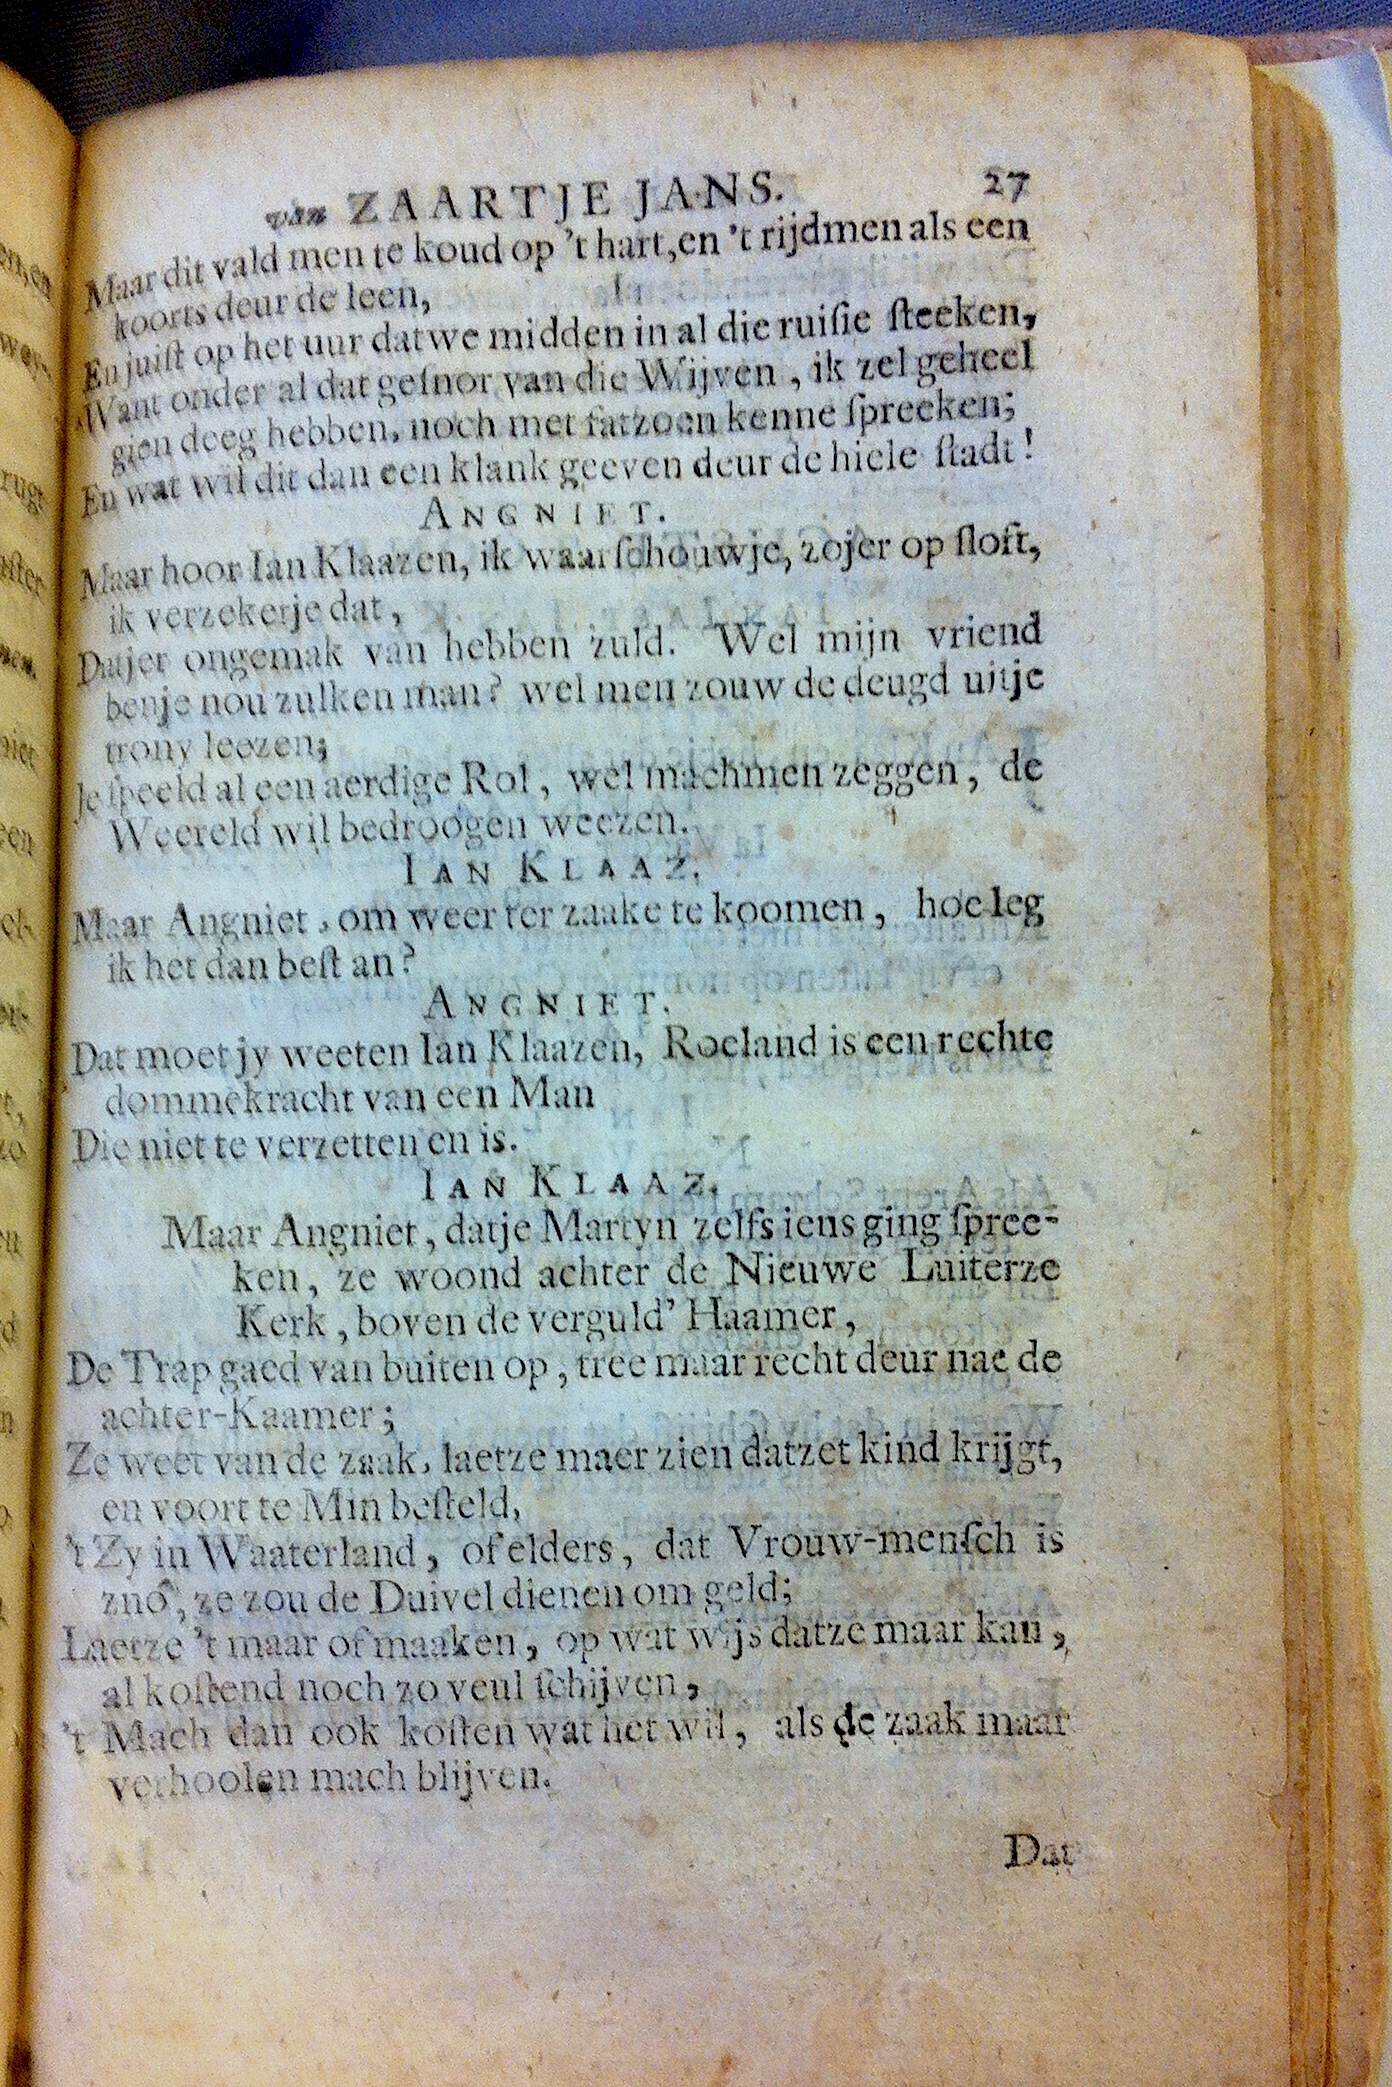 van ZAARTJE JANS. 27
Maar dit vald men te koud op 't hart, en 't rijdmen als een
koorts deur de leen,
En juiſt op het uur dat we midden in al die ruiſie ſteeken,
Want onder al dat geſnor van die Wijven, ik zel geheel
gien deeg hebben, noch met fatzoen kenne ſpreeken;
En wat wil dit dan een klank geeven deur de hiele ſtadt!
ANGNIET.
Maar hoor Ian Klaazen, ik waarſchouwje, zojer op ſloft,
ik verzekerje dat,
Datjer ongemak van hebben zuld. Wel mijn vriend
benje nou zulken man? wel men zouw de deugd uitje
trony leezen;
Je ſpeeld al een aerdige Rol, wel machmen zeggen, de
Weereld wil bedroogen weezen.
IAN KLAAZ.
Maar Angniet, om weer ter zaake te koomen, hoe leg
ik het dan beſt an?
ANGNIET.
Dat moet jy weeten Ian Klaazen, Roeland is een rechte
dommekracht van een Man
Die niet te verzetten en is.
IAN KLAAZ.
Maar Angniet, datje Martyn zelfs iens ging ſpree-
ken, ze woond achter de Nieuwe Luiterze
Kerk, boven de verguld' Haamer,
De Trap gaed van buiten op, tree maar recht deur nae de
achter-Kaamer;
Ze weet van de zaak, laetze maer zien datzet kind krijgt,
en voort te Min beſteld,
't Zy in Waaterland, of elders, dat Vrouw-menſch is
znô, ze zou de Duivel dienen om geld;
Laetze 't maar of maaken, op wat wijs datze maar kan,
al koſtend noch zo veul ſchijven,
't Mach dan ook koſten wat het wil, als de zaak maar
verhoolen mach blijven.
Dat